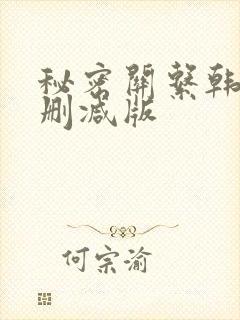 秘密關繫韩
删减版
何宗渝